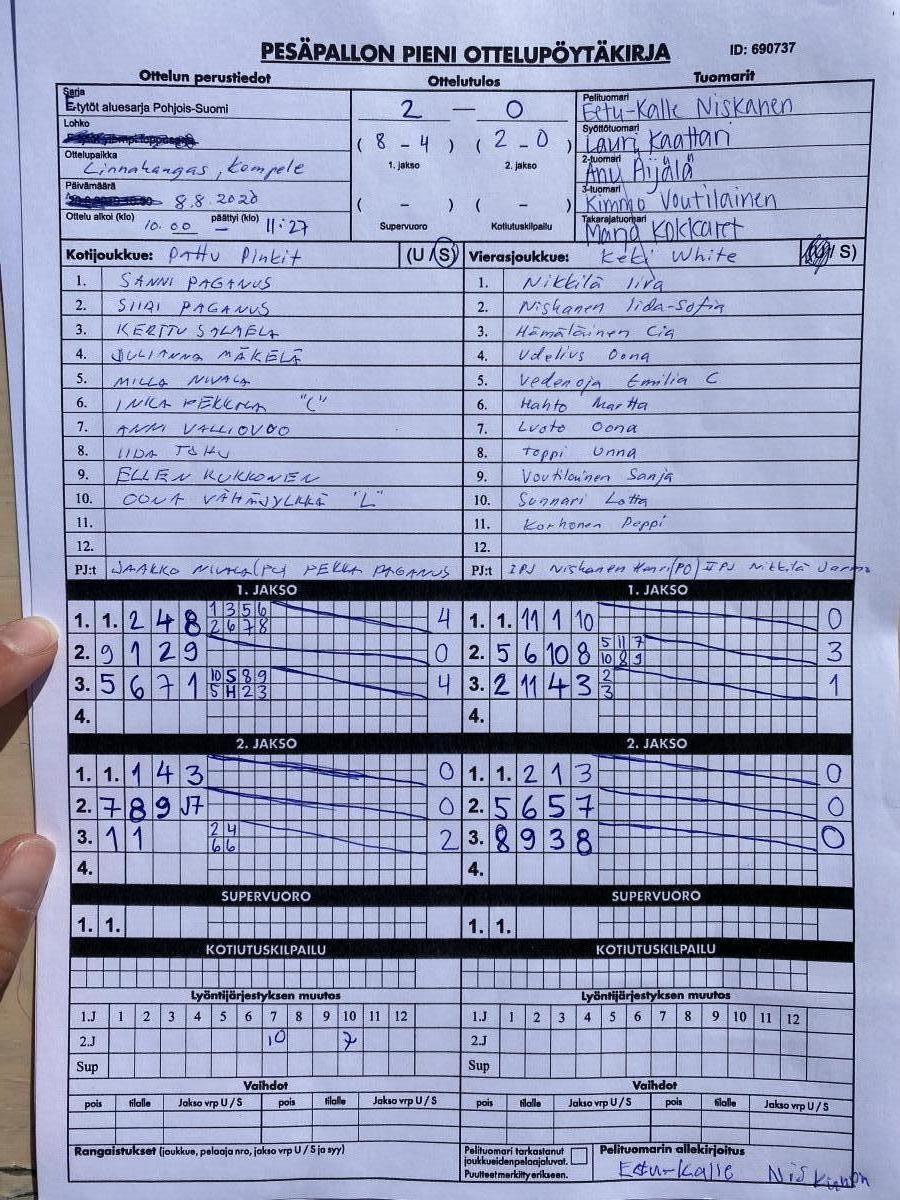 PESÄPALLON PIENI OTTELUPÖYTÄKIRJA ID: 690737
Ottelun perustiedot Ottelutulos Tuomarit
Sarja
E-tytöt aluesarja Pohjois-Suomi
Lohko
Ottelupaikka
Linnakangas, Kempele
Päivämäärä
8.8.2020
Ottelu alkoi (klo) päättyi (klo)
10.00 – 11:27
2 — 0
( 8 - 4 ) ( 2 - 0 )
1. jakso 2. jakso
( - ) ( - )
Supervuoro Kotiutuskilpailu
Pelituomari
Eetu-Kalle Niskanen
Syöttötuomari
Lauri Kaattari
2-tuomari
Anu Äijälä
3-tuomari
Kimmo Voutilainen
Takarajatuomari
Kotijoukkue: PattU Pinkit (U / S)
1. SANNI PAGANUS
2. SIIRI PAGANUS
3. KERTTU
4. JULIANNA MÄKELÄ
5. MILLA NIVALA
6. INKA "C"
7. ANNI
8. IIDA
9. ELLEN KUKKONEN
10. OONA "L"
11.
12.
PJ:t JAAKKO NIVALA (PJ) PEKKA PAGANUS
Vierasjoukkue: KeKi White / S)
1. Nikkilä Iira
2. Niskanen Iida-Sofia
3. Hämäläinen Cia
4. Udelius Oona
5. Vedenoja Emilia C
6. Hahto Martta
7. Luoto Oona
8. Toppi Unna
9. Voutilainen Sanja
10. Sunnari Lotta
11. Korhonen Peppi
12.
PJ:t IPJ Niskanen Harri(PO) IIPJ Nikkilä Jarmo
1. JAKSO
1. 1. 2 4 8 1 3 5 6 4
2 6 7 8
2. 9 1 2 9 0
3. 5 6 7 1 10 5 8 9 4
5 H 2 3
4.
2. JAKSO
1. 1. 1 4 3 0
2. 7 8 9 J7 0
3. 1 1 2 4 2
6 6
4.
SUPERVUORO
1. 1.
KOTIUTUSKILPAILU
Lyöntijärjestyksen muutos
1.J 1 2 3 4 5 6 7 8 9 10 11 12
2.J 10 7
Sup
Vaihdot
pois tilalle Jakso vrp U / S pois tilalle Jakso vrp U / S
Rangaistukset (joukkue, pelaaja nro, jakso vrp U / S ja syy)
1. JAKSO
1. 1. 11 1 10 0
2. 5 6 10 8 5 11 7 3
10 8 9
3. 2 11 4 3 2 1
3
4.
2. JAKSO
1. 1. 2 1 3 0
2. 5 6 5 7 0
3. 8 9 3 8 0
4.
SUPERVUORO
1. 1.
KOTIUTUSKILPAILU
Lyöntijärjestyksen muutos
1.J 1 2 3 4 5 6 7 8 9 10 11 12
2.J
Sup
Vaihdot
pois tilalle Jakso vrp U / S pois tilalle Jakso vrp U / S
Pelituomari tarkastanut
joukkueidenpelaajaluvat.
Puutteetmerkittyerikseen.
Pelituomarin allekirjoitus
Eetu-Kalle Niskanen